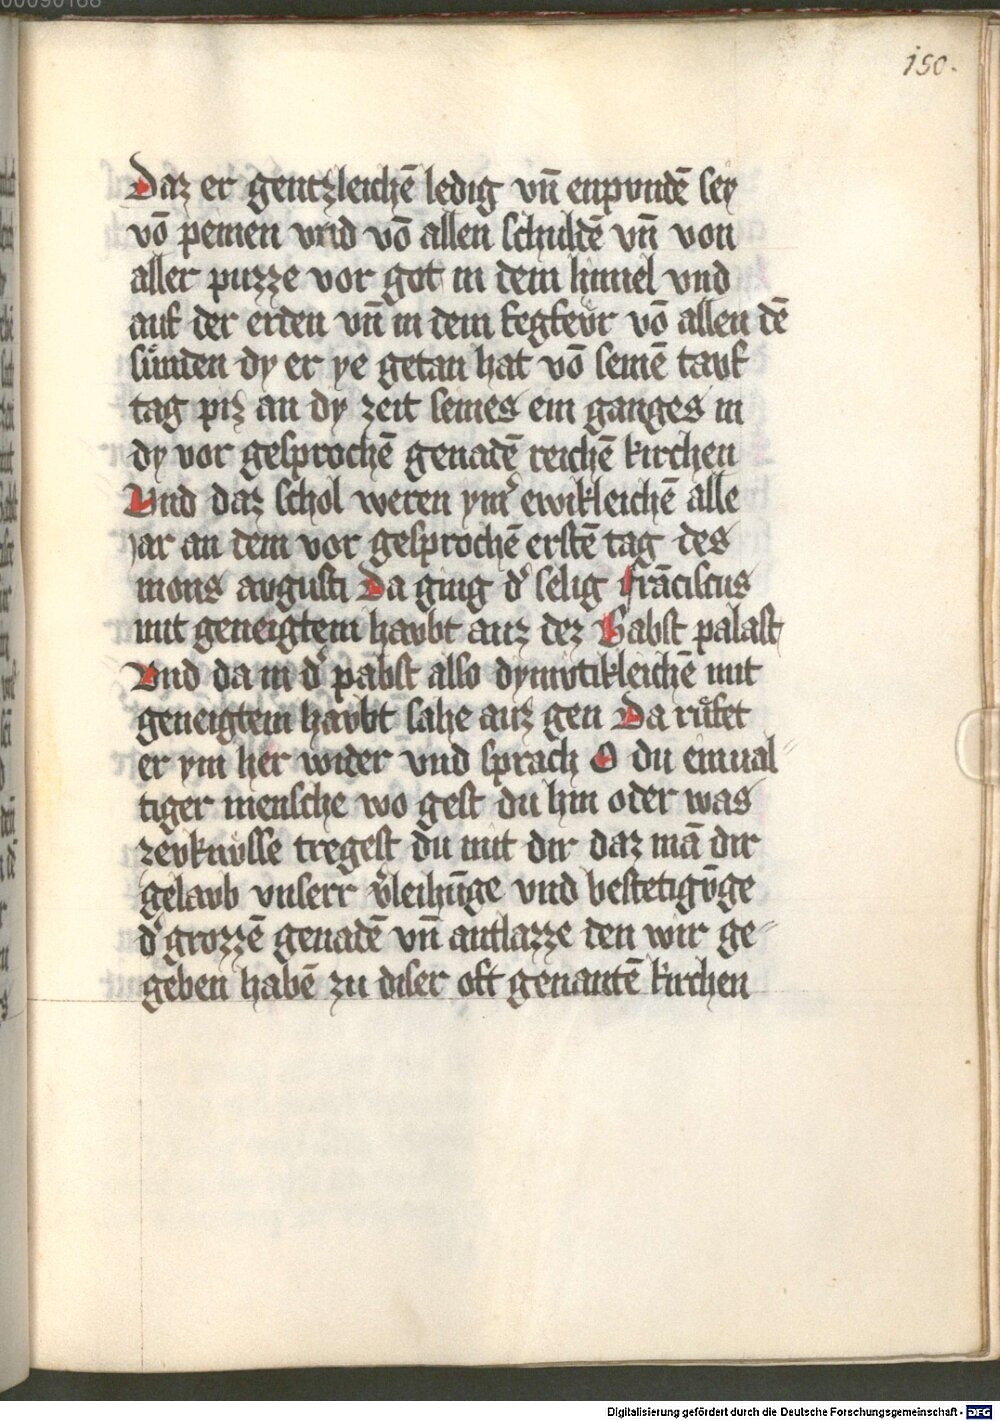 00090168
150.
Daz er gentzleichē ledig vn̄ enpundē sey
vō peinen vnd vō allen schuldē vn̄ von
aller puzze vor got in dem himel vnd
auf der erden vn̄ in dem fegfeẘr vō allen dē
sünden dy er ye getan hat vō seinē tauf
tag piz an dy zeit seines ein ganges in
dy vor gesprochē genadē reichē kirchen
Vnd daz schol weren ym̉ ewikleichē alle
jar an dem vor gesprochē erstē tag des
mons augusti Da ging d̉ selig frāciscus
mit geneigtem havbt auz dez Babst palast
Vnd da in d̉ pabst also dymvtikleichē mit
geneigtem havbt sahe auz gen Da rüfet
er ym her wider vnd sprach O du einual⸗
tiger mensche wo gest du hin oder was
zevknvsse tregest du mit dir daz mā dir
gelavb vnserr v̉leihūge vnd bestetigv̄ge
d̉ grozzē genadē vn̄ antlazze den wir ge⸗
geben habē zu diser oft genantē kirchen
Digitalisierung gefördert durch die Deutsche Forschungsgemeinschaft - DFG